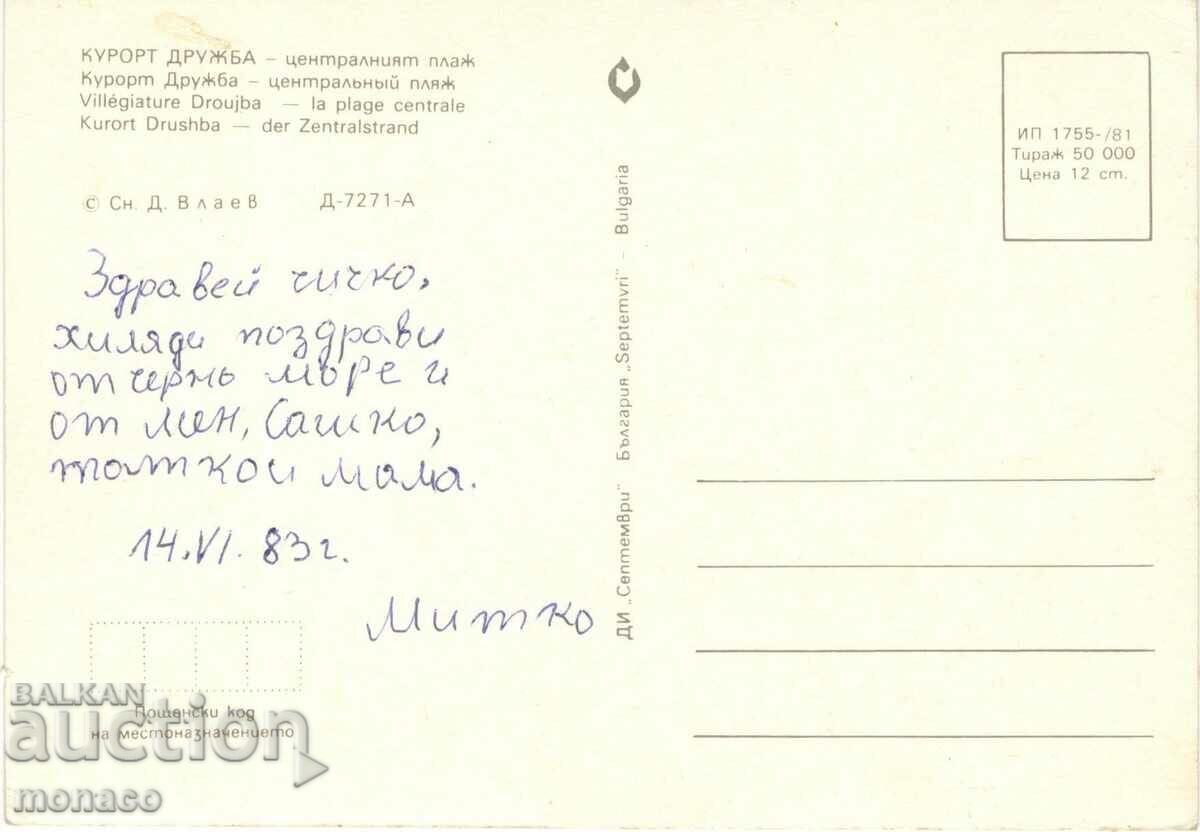 КУРОРТ ДРУЖБА – централният плаж
Курорт Дружба – центральный пляж
Villégiature Droujba — la plage centrale
Kurort Drushba — der Zentralstrand
© Сн. Д. Влаев Д-7271-А
Здравей чичко,
хиляди поздрави
от чернь море и
от мен, Сашко,
татко и мама.
14.VI.83г.
Митко
Пощенски код
на местоназначението
ДИ „Септември" България „Septemvri" – Bulgaria
ИП 1755-/81
Тираж 50 000
Цена 12 ст.
BALKAN
auction
monaco